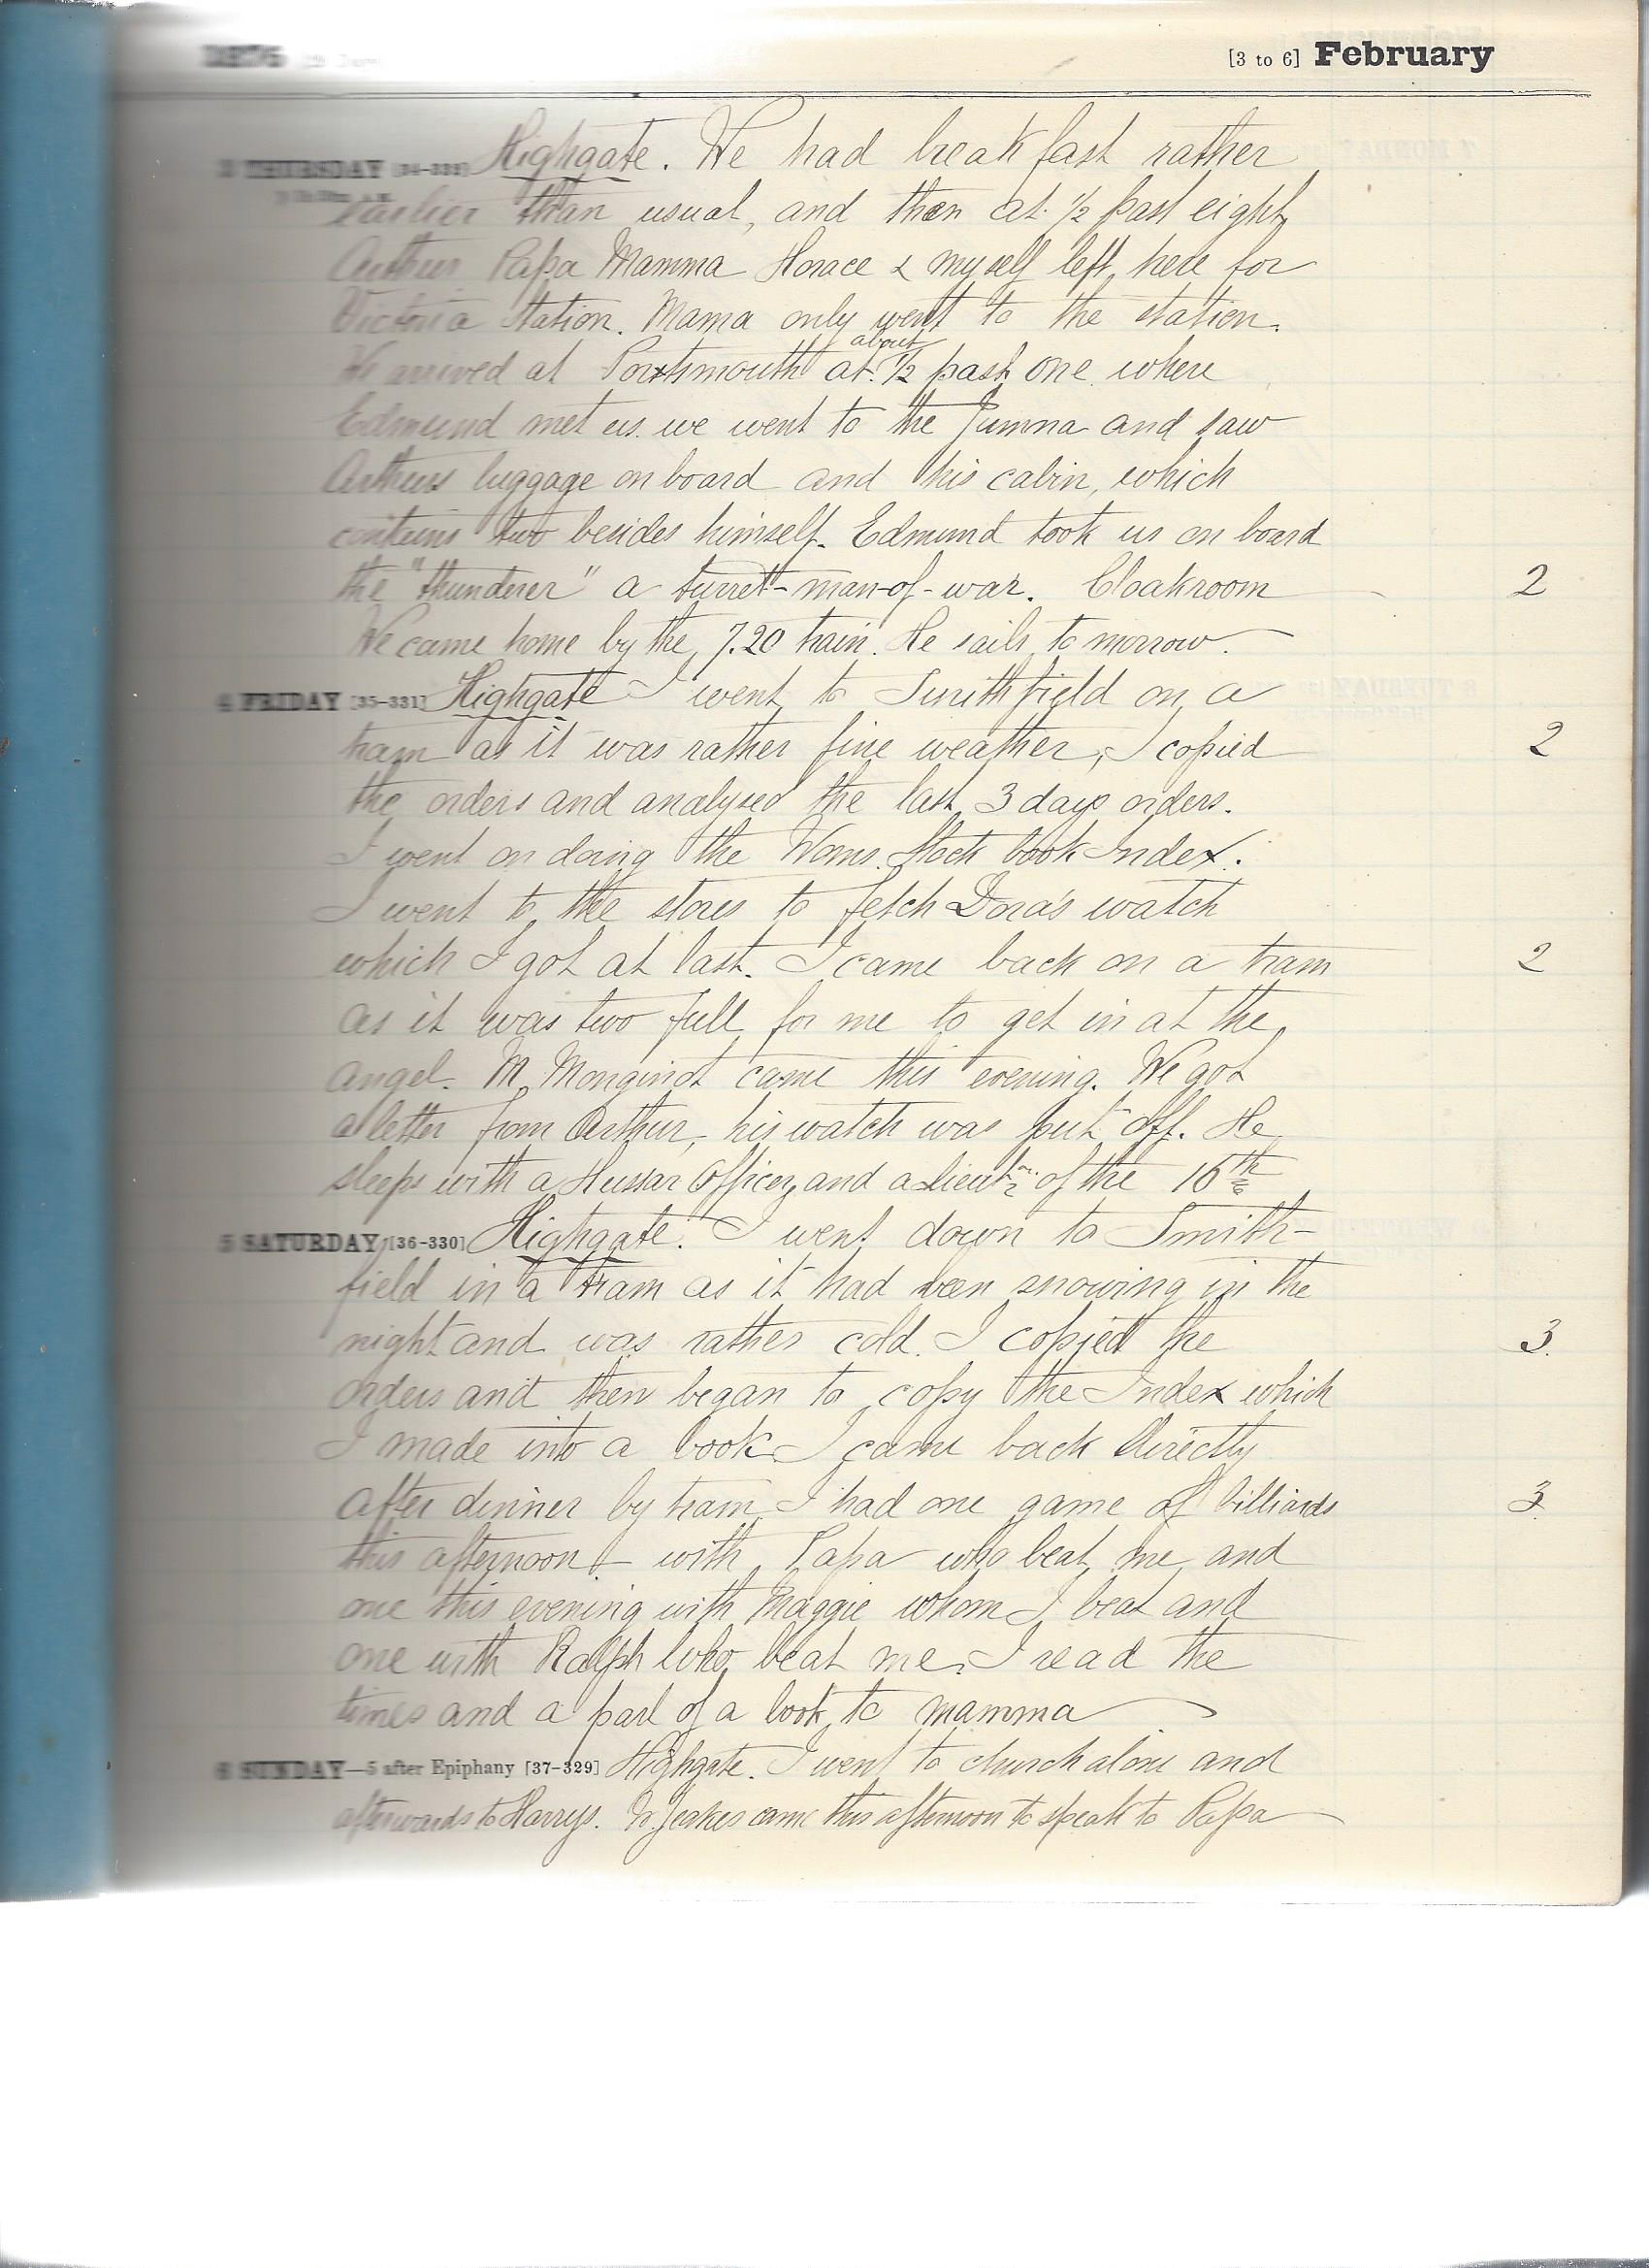 1876
[3 to 6] February
3 THURSDAY [34-332] Highgate. We had breakfast rather
earlier than usual, and then at ½ past eight
Arthur Papa Mamma Horace & myself left here for
Victoria Station. Mama only went to the station.
about
We arrived at Portsmouth at ½ past one where
Edmund met us. we went to the Jumna and saw
Arthurs luggage on board and his cabin, which
contains two besides himself. Edmund took us on board
the "thunderer" a turret-man-of-war. Cloakroom 2
We came home by the 7.20 train. He sails to morrow.
4 FRIDAY [35-331] Highgate I went to Smithfield on a
tram as it was rather fine weather, I copied 2
the orders and analysed the last 3 days orders.
I went on doing the Woms. Stock book Index.
I went to the stores to fetch Dora's watch
which I got at last. I came back on a tram 2
as it was two full for me to get in at the
angel. M. Monginot came this evening. We got
a letter from Arthur, his watch was put off. He
sleeps with a Hussar Officer, and a Lieut. of the 16th
5 SATURDAY [36-330] Highgate. I went down to Smith-
field in a tram as it had been snowing in the
night and was rather cold. I copied the 3
orders and then began to copy the Index which
I made into a book I came back directly
after dinner by tram I had one game of billiards 3
this afternoon - with Papa who beat me, and
one this evening with Maggie whom I beat and
one with Ralph who beat me. I read the
times and a part of a book to mamma
6 SUNDAY—5 after Epiphany [37-329] Highgate. I went to church alone and
afterwards to Harrys. Jeakes came this afternoon to speak to Papa